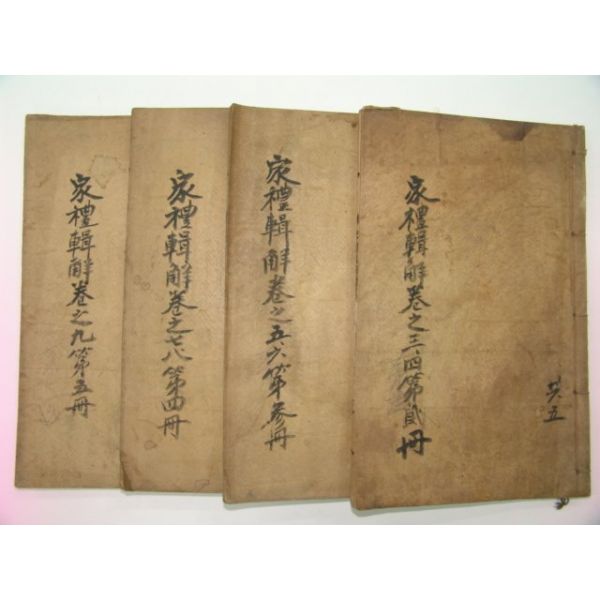 家禮輯解卷之三四第貳冊
共五
家禮輯解卷之五六第參冊
家禮輯解卷之七八第四冊
家禮輯解卷之九第五冊